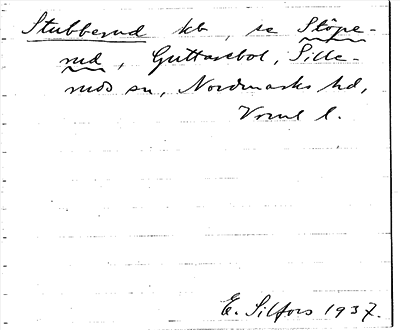 Stubberud kb, se Stöpe-
rud, Guttarebol, Sille-
ruds sn, Nordmarks hd,
Vrml l.
E. Silfors 1937.